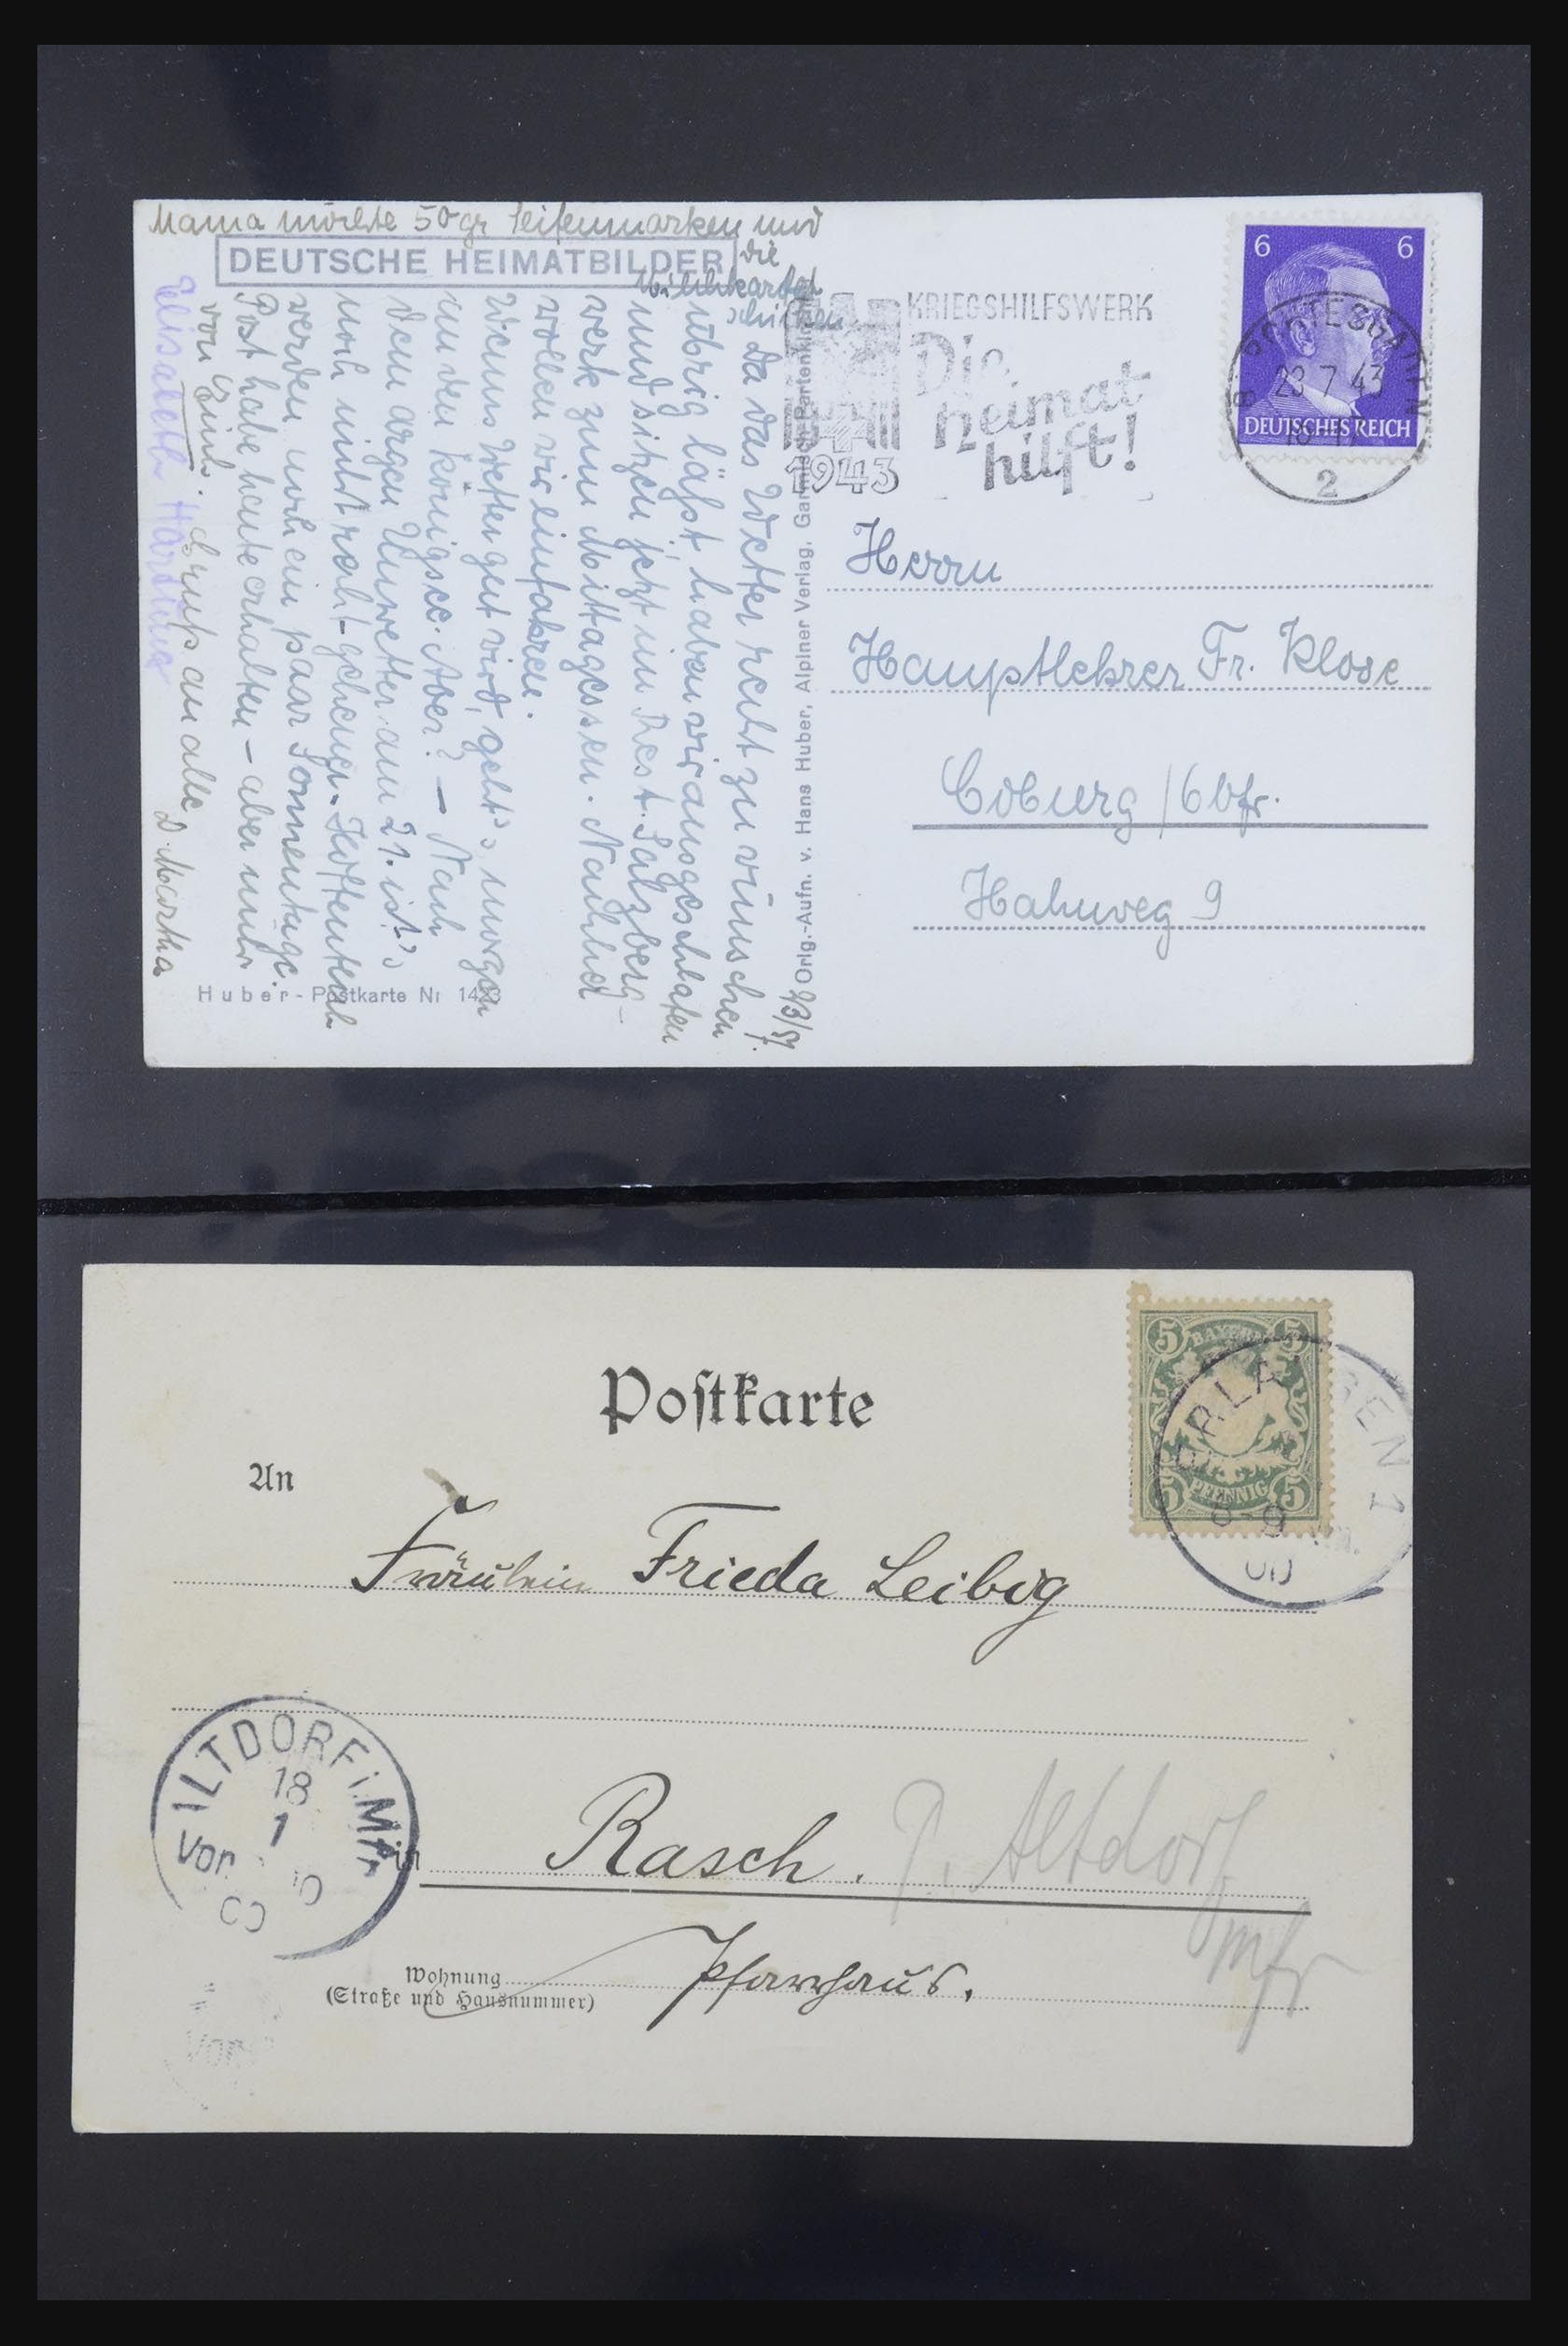 Mama möchte 50 gr Seifenmarken und
die
Milchkarte
schicken
DEUTSCHE HEIMATBILDER
23/7.
Da das Wetter recht zu wünschen
übrig läßt haben wir ausgeschlafen
und sitzen jetzt im Rest. Salzberg-
werk zum Mittagessen. Nachher
wollen wir einfahren.
Wenns Wetter gut wird, geht's morgen
an den Königsee. Aber? — Nach
dem argen Unwetter am 21. ist's
noch nicht recht geheuer. Hoffentlich
werden noch ein paar Sonnentage.
Post habe heute erhalten – aber nur
von Euch. Gruß an alle D. Martha
Elisabeth Hartung
Huber-Postkarte Nr
Orig.-Aufn. v. Hans Huber, Alpiner Verlag, Garmisch-Partenkirchen
KRIEGSHILFSWERK
Die
Heimat
hilft!
1943
6 6
DEUTSCHES REICH
BERCHTESGADEN
23 7 43
2
Herrn
Hauptlehrer Fr. Klose
Coburg /
Hahnweg 9
Postkarte
An
5 BAYERN 5
5 PFENNIG 5
ERLANGEN 1
8-9
00
Fräulein Frieda Leibig
ALTDORF i. Mfr
18
1
Vor.
00
in
Rasch. P. Altdorf
mfr
Wohnung
(Straße und Hausnummer)
Pfarrhaus.
Vor